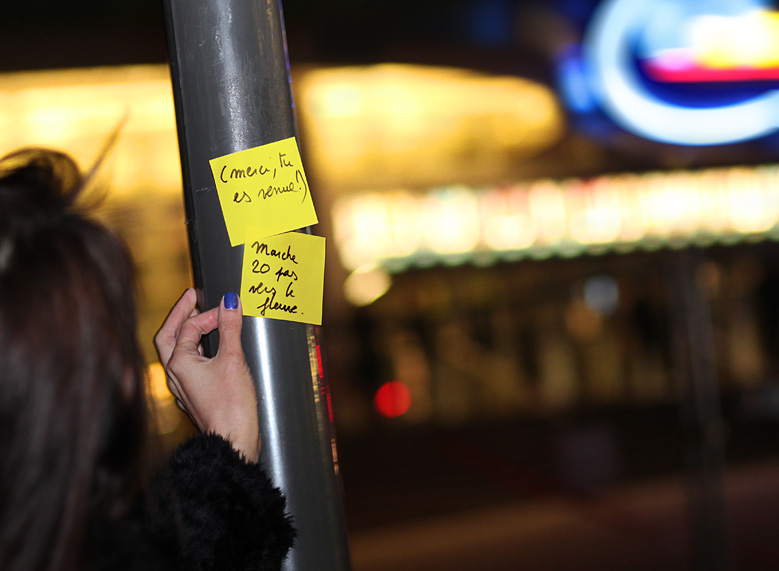 (merci, tu
es venue!)
Marche
20 pas
vers le
fleuve.